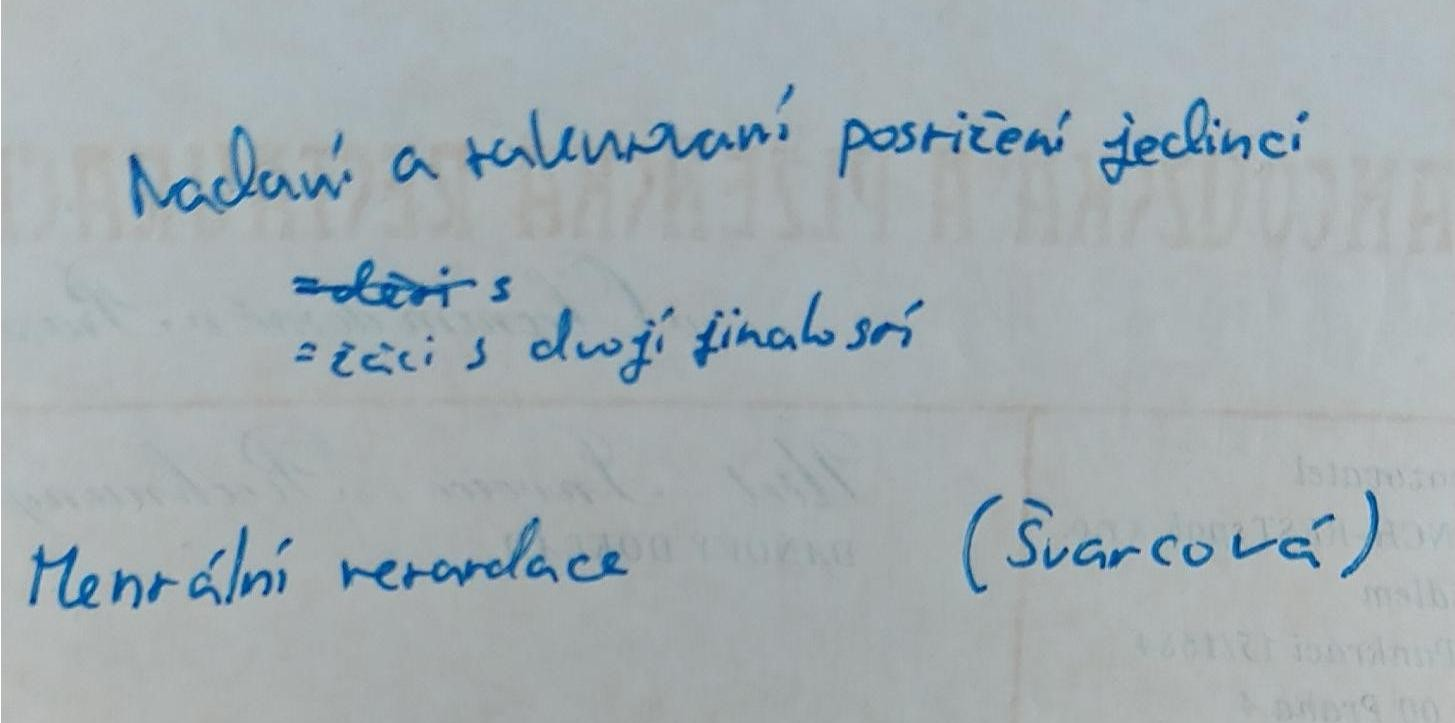 Nadaní a talentovaní postižení jedinci
= děti s
= žáci s dvojí jinakostí
Mentální retardace (Švarcová)